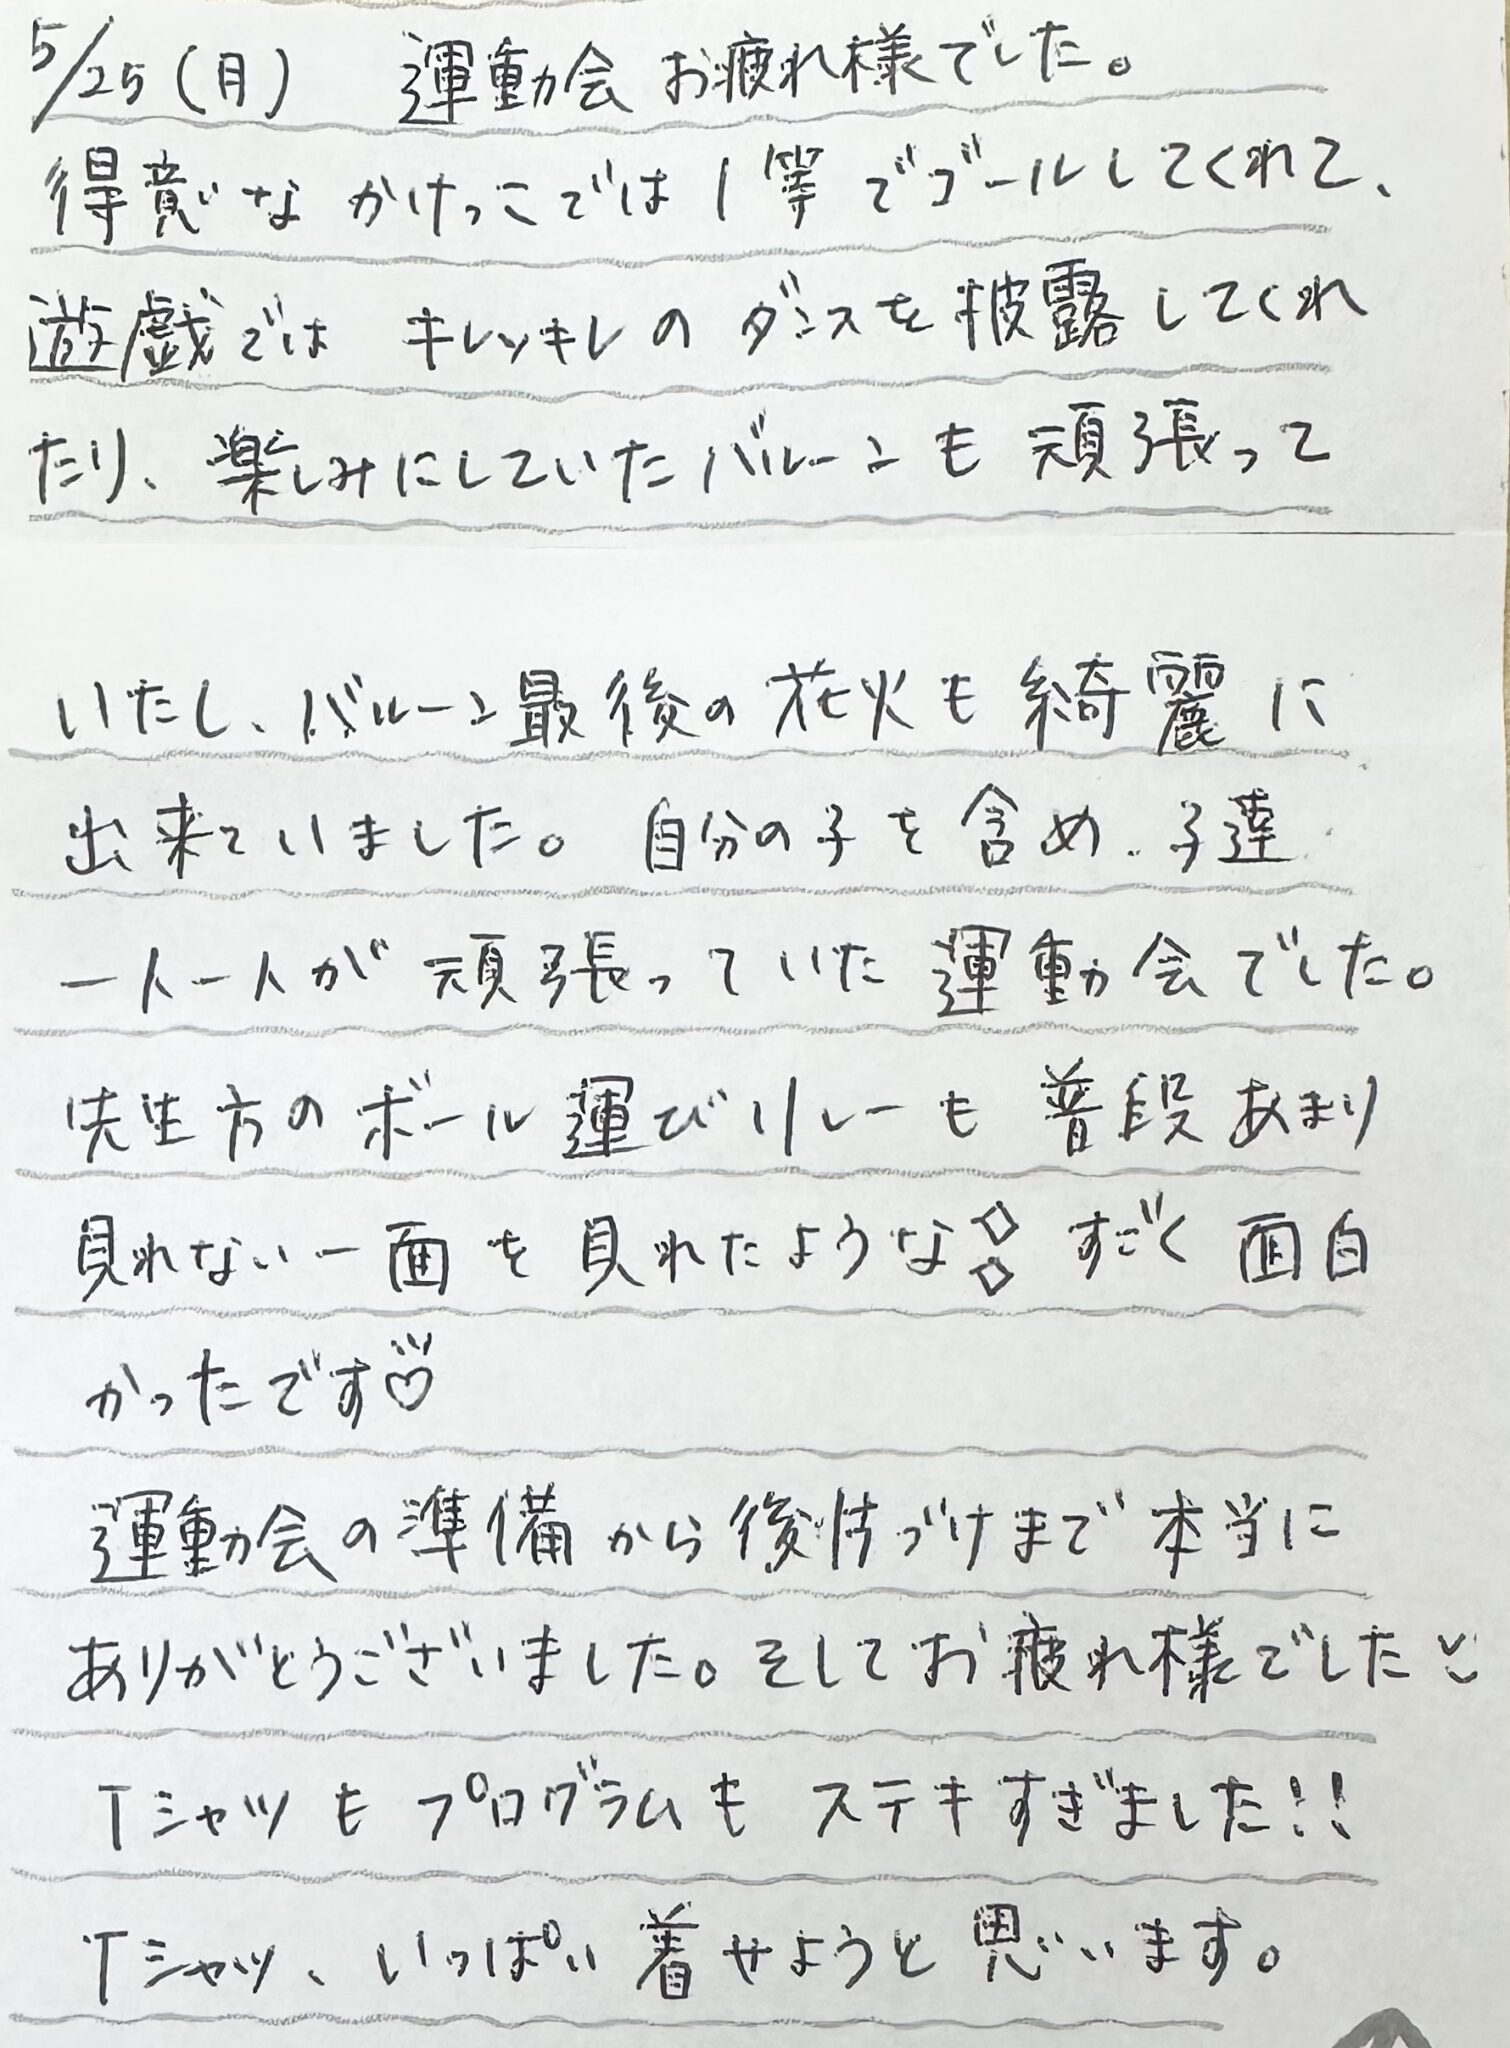 5/25(月) 運動会お疲れ様でした。
得意なかけっこでは1等でゴールしてくれて、
遊戯では キレッキレのダンスを披露してくれ
たり、楽しみにしていたバルーンも頑張って
いたし、バルーン最後の花火も綺麗に
出来ていました。自分の子を含め、子達
一人一人が頑張っていた運動会でした。
先生方のボール運びリレーも普段あまり
見れない一面を見れたような◇◇すごく面白
かったです♡
運動会の準備から後片づけまで本当に
ありがとうございました。そしてお疲れ様でした
Tシャツもプログラムもステキすぎました!!
Tシャツ、いっぱい着せようと思います。